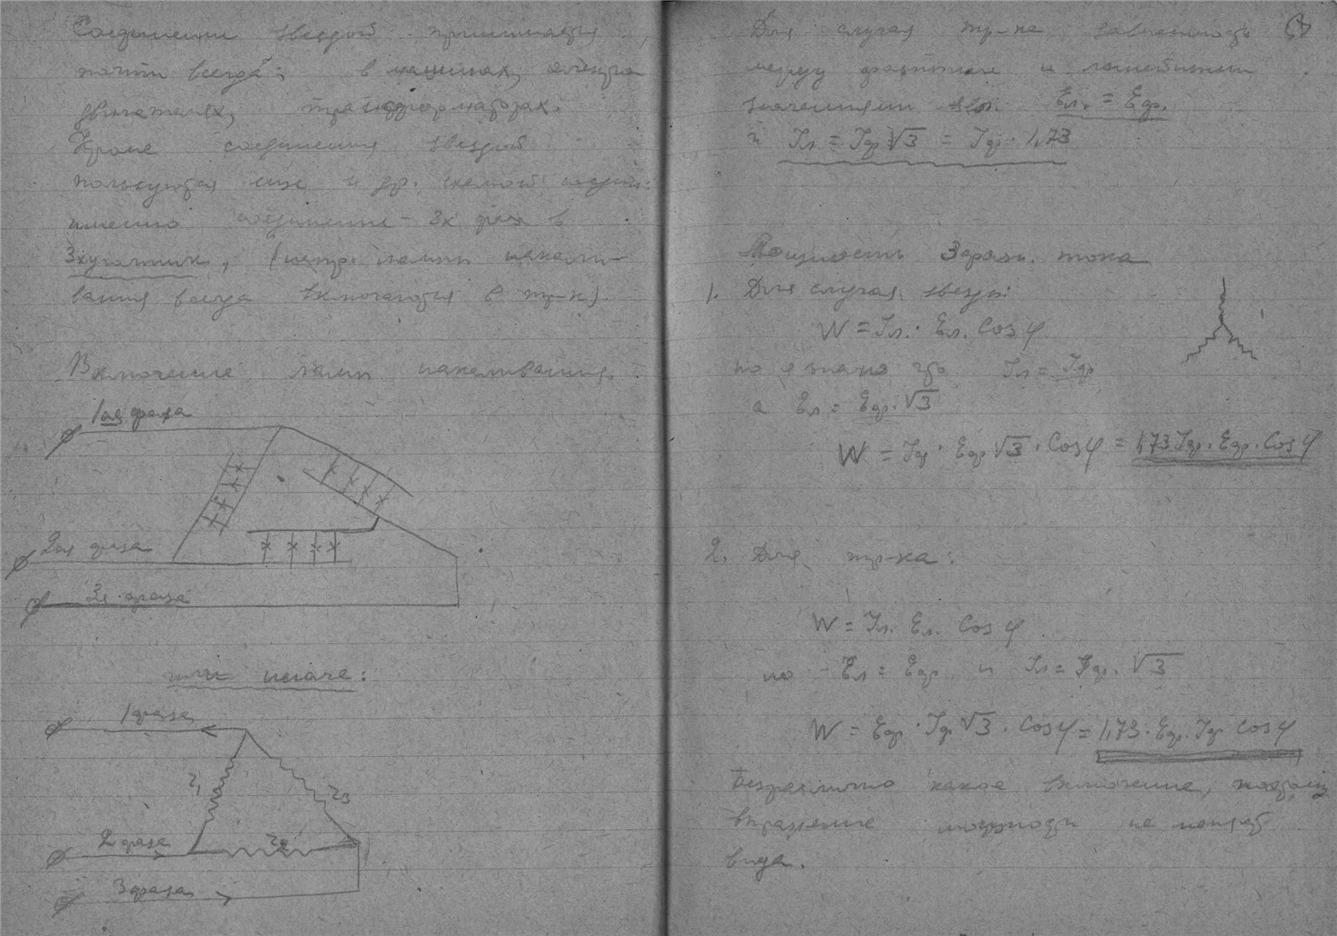 Соединение звездой применяется
почти всегда: в машинах, электро
двигателях, трансформаторах.
Кроме соединения звездой
пользуются еще и др. схемой
именно соединение 3х фаз в
3хугольник, лампы накали-
вания всегда включаются в тр-к).
Включение ламп накаливания.
1ая фаза
2ая фаза
3я фаза
или иначе:
1 фаза
r1
r3
2 фаза
r2
3 фаза
Для случая тр-ка зависимость
между фазными и линейными
значениями Eл. = Eф.
и Jл = Jф √3 = Jф · 1,73
Мощность 3фазн. тока
1. Для случая звезды
W = Jл. Eл. Cos φ
но Jл = Jф
а Eл = Eф. √3
W = Jф · Eф √3 · Cos φ = 1,73 Jф. Eф. Cos φ
2. Для тр-ка:
W = Jл. Eл. Cos φ
но Eл = Eф и Jл = Jф. √3
W = Eф · Jф √3 · Cos φ = 1,73 · Eф. Jф Cos φ
Безразлично какое включение,
выражение мощности не меняет
вида.